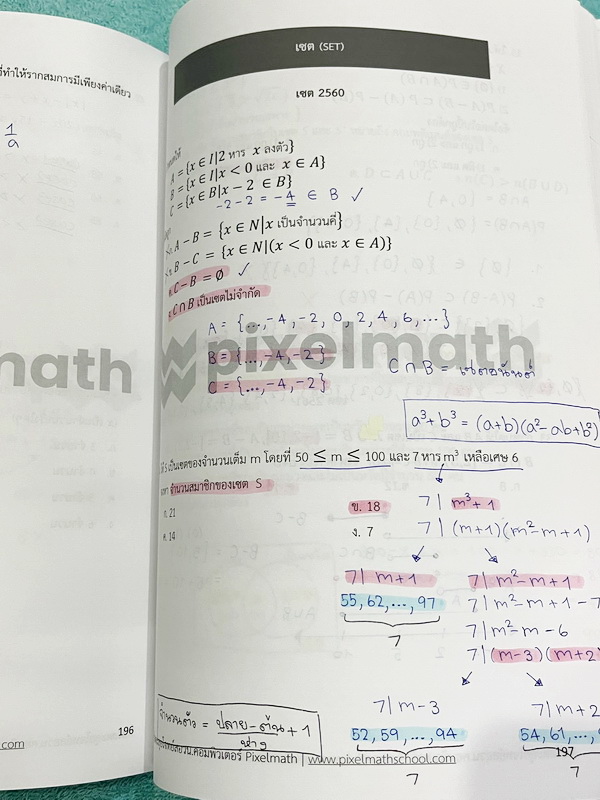 ที่ทำให้รากสมการมีเพียงค่าเดียว
1
a
196
เซต (SET)
เซต 2560
A = {x ∈ I|2 หาร x ลงตัว}
B = {x ∈ I|x < 0 และ x ∈ A}
C = {x ∈ B|x − 2 ∈ B}
-2-2 = -4 ∈ B ✓
A − B = {x ∈ N|x เป็นจำนวนคี่}
B − C = {x ∈ N|(x < 0 และ x ∈ A)}
C − B = ∅ ✓
C ∩ B เป็นเซตไม่จำกัด
A = {..., -4, -2, 0, 2, 4, 6, ...}
B = {..., -4, -2}
C = {..., -4, -2}
C ∩ B = เซตอนันต์
pixelmath
a³+b³ = (a+b)(a²-ab+b²)
S เป็นเซตของจำนวนเต็ม m โดยที่ 50 ≤ m ≤ 100 และ 7 หาร m³ เหลือเศษ 6
จำนวนสมาชิกของเซต S
ก. 21
ข. 18
ค. 14
ง. 7
7| m³+1
7| (m+1)(m²-m+1)
7| m+1
55, 62, ..., 97
7
7| m²-m+1
7| m²-m+1-7
7| m²-m-6
7| (m-3)(m+2)
7| m-3
52, 59, ..., 94
7
7| m+2
54, 61, ...,
7
จำนวนตัว = ปลาย - ต้น + 1
ห่าง
คอมพิวเตอร์ Pixelmath | www.pixelmathschool.com
197